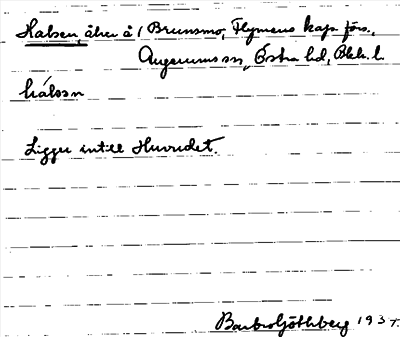 Halsen, åker å / Brunsmo, Flymens kap. förs.,
Augerums sn, Östra hd, Blek. l.
hálssn
Ligger intill Huvudet.
Barbro Göthberg 1937.